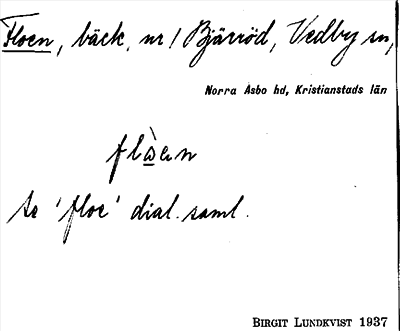 Floen, bäck, nr 1 Bjärröd, Vedby sn,
Norra Åsbo hd, Kristianstads län
flò̱ən
Se 'floe' dial. saml.
BIRGIT LUNDKVIST 1937